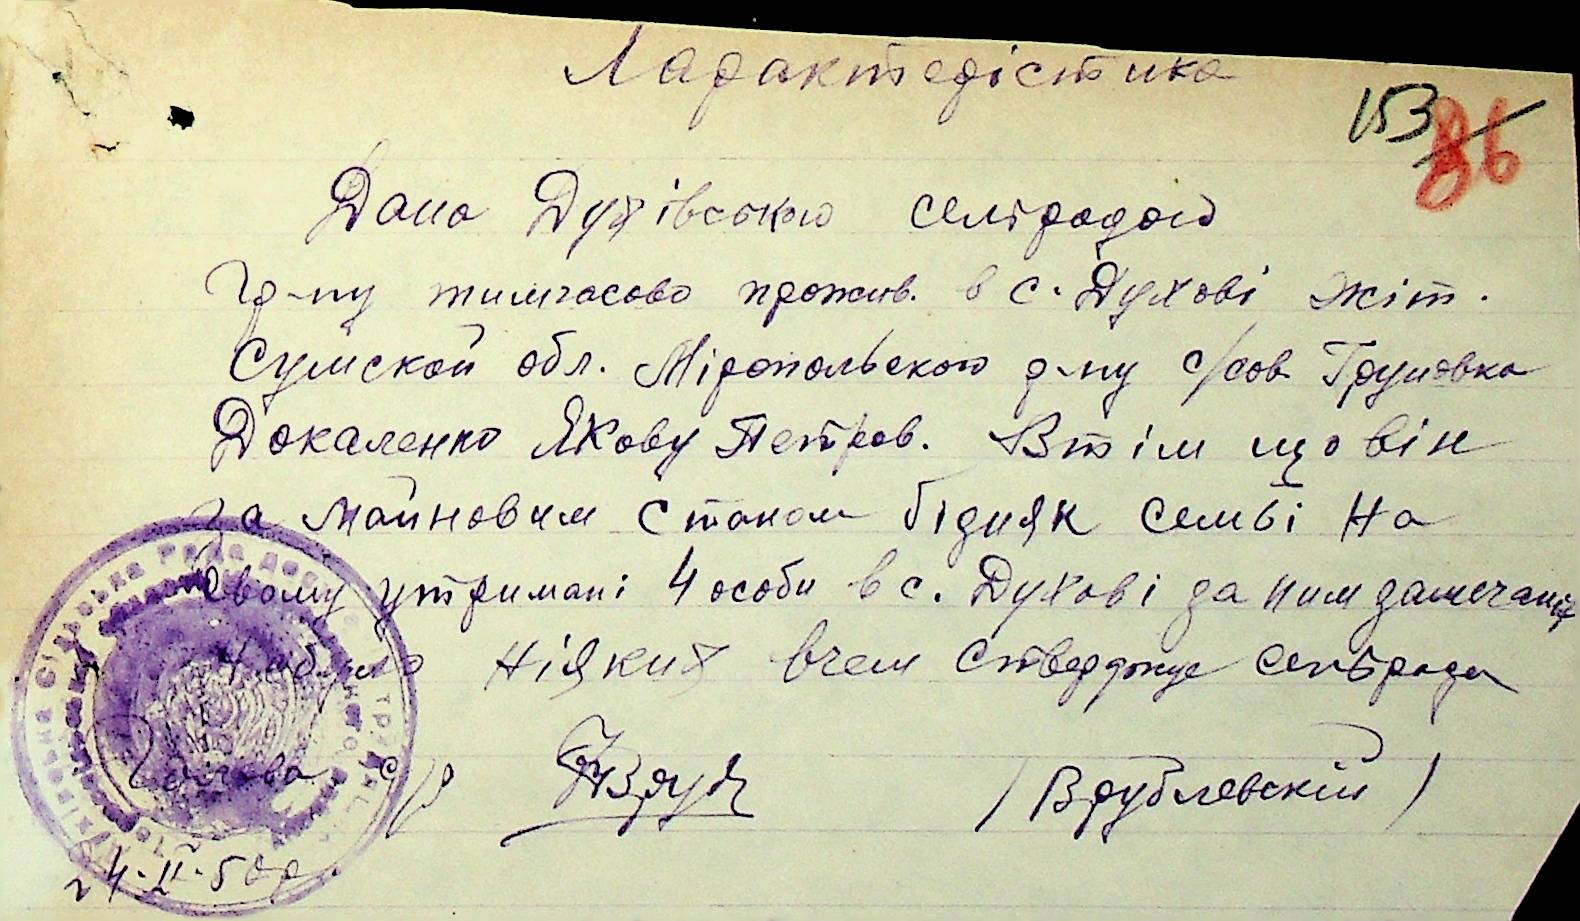 Характерістика
153 86
Дана Духівською сельрадою
гр-ну тимчасово прожив. в с. Духові жіт.
Сумской обл. Міропольського р-ну с/сов Груновка
Докаленко Якову Петров. Втім що він
за майновим станом бідняк семьі на
свому утримані 4 особи в с. Духові за ним замечаній
не було ніяких вчем стверджує сельрада
Голова с/р (Врублевскій)
24.II.50р.